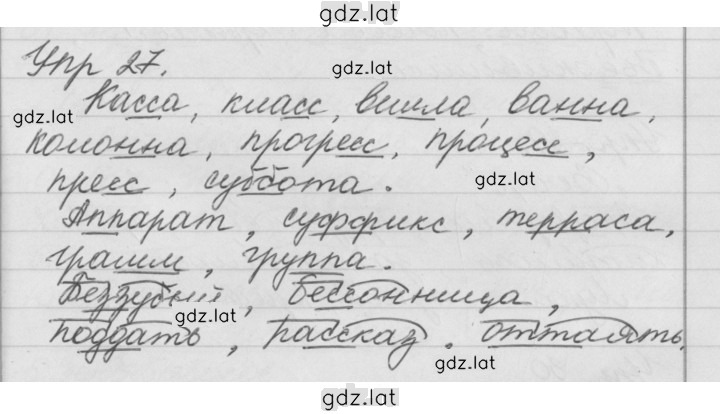 gdz.lat
Упр 27.
gdz.lat
Касса, класс, вилла, ванна,
gdz.lat
колонна, прогресс, процесс,
пресс, суббота.
gdz.lat
Аппарат, суффикс, терраса,
грамм, группа.
Беззубый, бессонница,
gdz.lat
поддать, рассказ, оттаять.
gdz.lat
gdz.lat